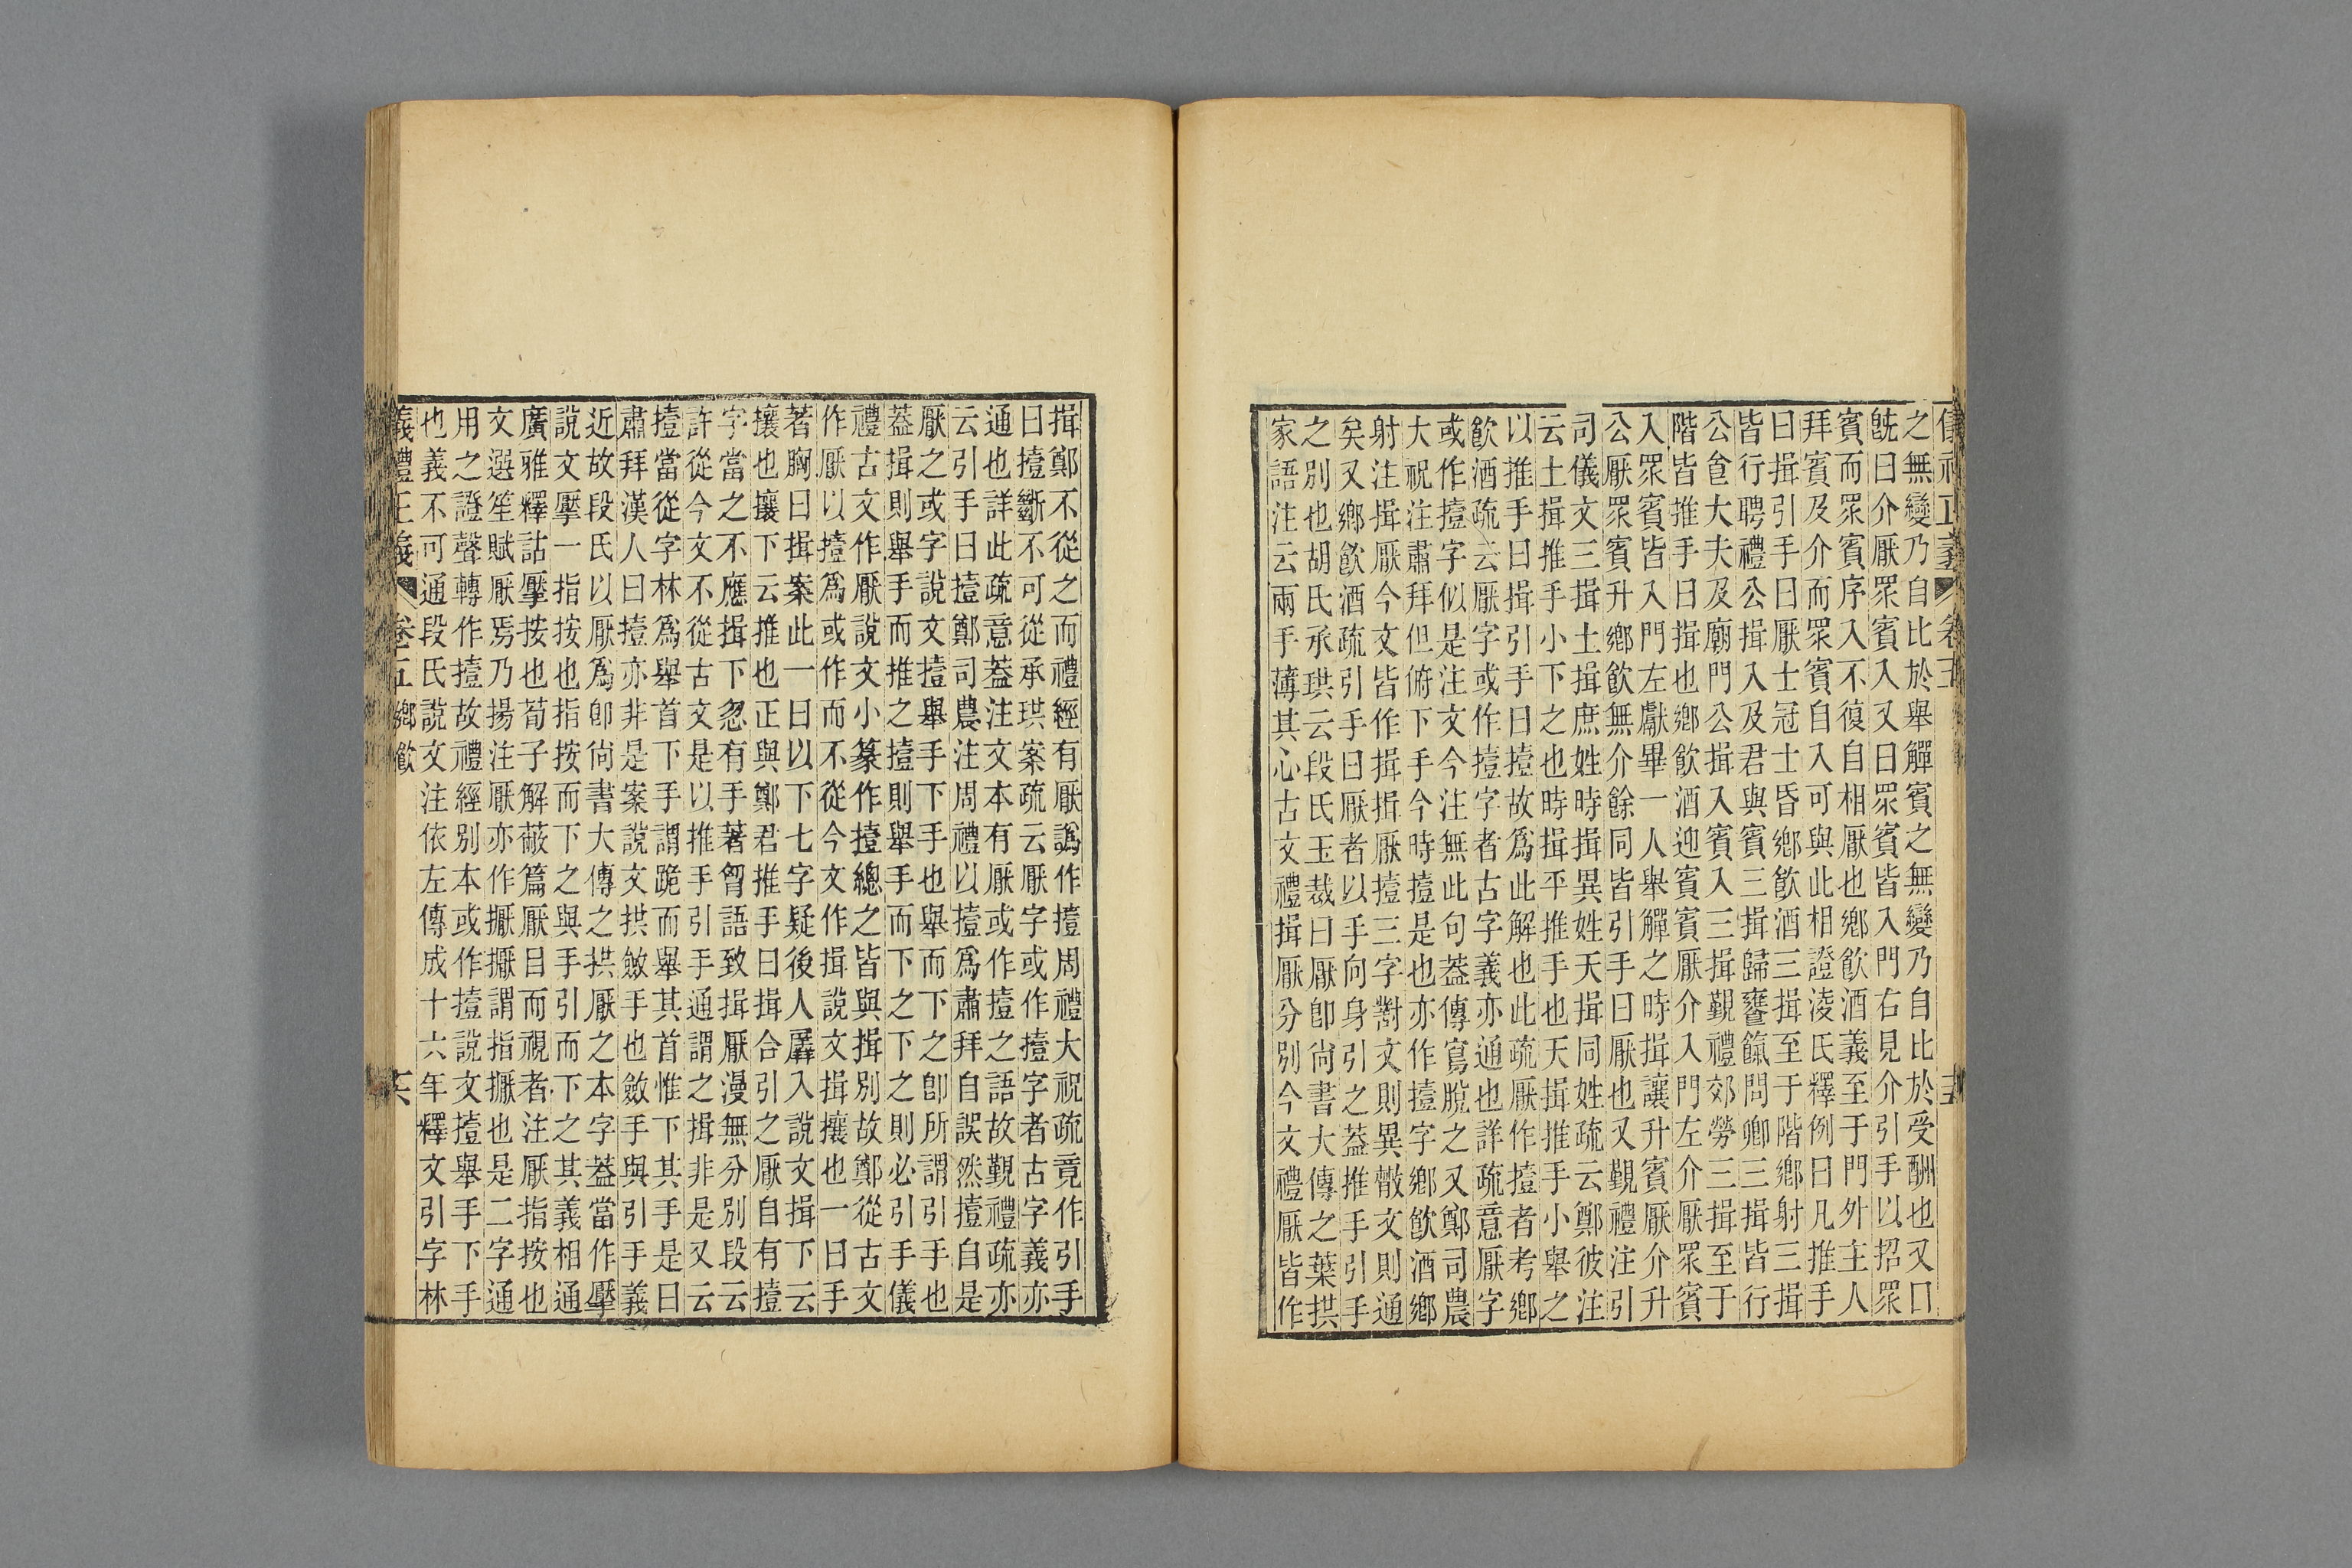 儀禮正義 卷五 十五
之無變乃自比於舉觶賓之無變乃自比於受酬也又曰
旣曰介厭眾賓入又曰眾賓皆入門右見介引手以招眾
賓而眾賓序入不復自相厭也鄉飮酒義至于門外主人
拜賓及介而眾賓自入可與此相證淩氏釋例曰凡推手
曰揖引手曰厭士冠士昏鄉飮酒三揖至于階鄉射三揖
皆行聘禮公揖入及君與賓三揖歸饔餼問卿三揖皆行
公食大夫及廟門公揖入賓入三揖覲禮郊勞三揖至于
階皆推手曰揖也鄉飮酒迎賓賓厭介入門左介厭眾賓
入眾賓皆入門左獻畢一人舉觶之時揖讓升賓厭介升
公厭眾賓升鄉飮無介餘同皆引手曰厭也又覲禮注引
司儀文三揖土揖庶姓時揖異姓天揖同姓疏云鄭彼注
云土揖推手小下之也時揖平推手也天揖推手小舉之
以推手曰揖引手曰撎故爲此解也此疏厭作撎者考鄉
飮酒疏云厭字或作撎字者古字義亦通也詳疏意厭字
或作撎字似是注文今注無此句蓋傳寫脫之又鄭司農
大祝注肅拜但俯下手今時撎是也亦作撎字鄉飮酒鄉
射注揖厭今文皆作揖揖厭撎三字對文則異散文則通
矣又鄉飮酒疏引手曰厭者以手向身引之蓋推手引手
之別也胡氏承珙云段氏玉裁曰厭卽尙書大傳之葉拱
家語注云兩手薄其心古文禮揖厭分別今文禮厭皆作
揖鄭不從之而禮經有厭譌作撎周禮大祝疏竟作引手
曰撎斷不可從承珙案疏云厭字或作撎字者古字義亦
通也詳此疏意蓋注文本有厭或作撎之語故覲禮疏亦
云引手曰撎鄭司農注周禮以撎爲肅拜自誤然撎自是
厭之或字說文撎舉手下手也舉而下之卽所謂引手也
蓋揖則舉手而推之撎則舉手而下之下之則必引手儀
禮古文作厭說文小篆作撎總之皆與揖別故鄭從古文
作厭以撎爲或作而不從今文作揖說文揖攘也一曰手
著胸曰揖案此一曰以下七字疑後人羼入說文揖下云
攘也攘下云推也正與鄭君推手曰揖合引之厭自有撎
字當之不應揖下忽有手著胷語致揖厭漫無分別段云
許從今文不從古文是以推手引手通謂之揖非是又云
撎當從字林爲舉首下手謂跪而舉其首惟下其手是曰
肅拜漢人曰撎亦非是案說文拱斂手也斂手與引手義
近故段氏以厭爲卽尙書大傳之拱厭之本字蓋當作擪
說文擪一指按也指按而下之與手引而下之其義相通
廣雅釋詁擪按也荀子解蔽篇厭目而視者注厭指按也
文選笙賦厭焉乃揚注厭亦作擫擫謂指擫也是二字通
用之證聲轉作撎故禮經別本或作撎說文撎舉手下手
也義不可通段氏說文注依左傳成十六年釋文引字林
義禮正義 卷五 鄉飮 十六